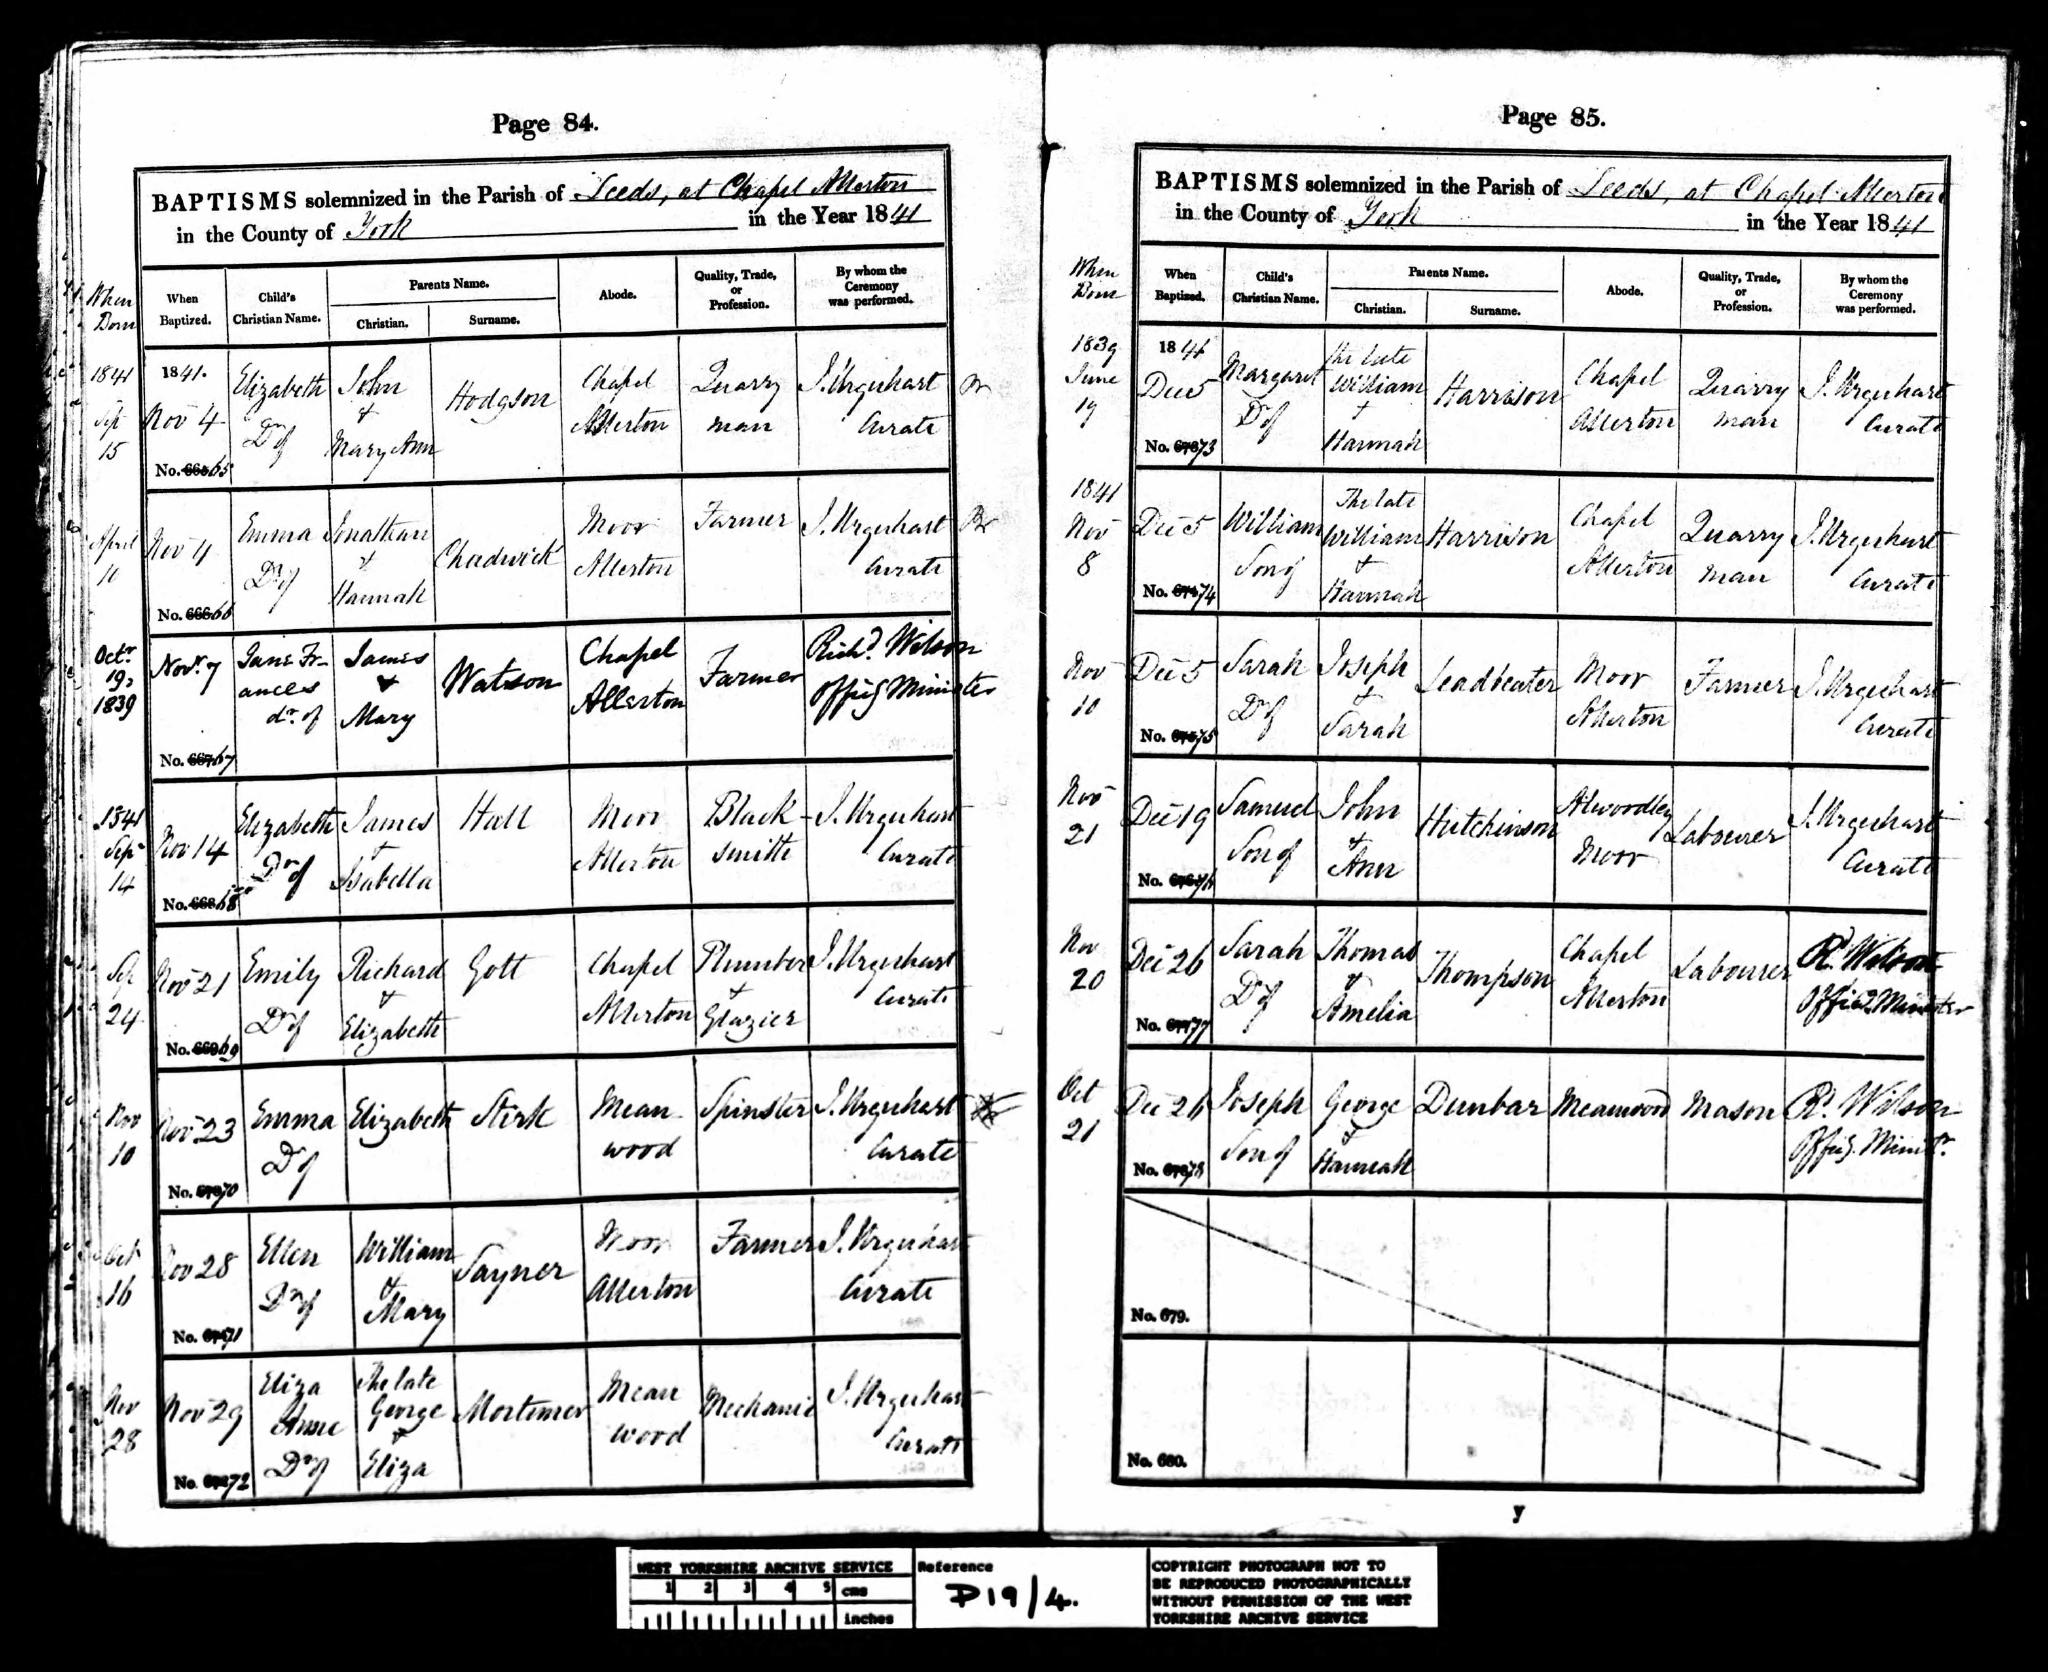 Page 84.
BAPTISMS solemnized in the Parish of Leeds, at Chapel Allerton
in the County of York in the Year 1841
When Born
When Baptized.
Child's Christian Name.
Parents Name.
Christian.
Surname.
Abode.
Quality, Trade, or Profession.
By whom the Ceremony was performed.
1841 Sep 15
1841. Nov 4 Elizabeth Dr of John & Mary Ann Hodgson Chapel Allerton Quarry man J. Urquhart Curate
No. 665 65
April 10
Nov 4 Emma Dr of Jonathan & Hannah Chadwick Moor Allerton Farmer J. Urquhart Curate
No. 666 66
Octr 19, 1839
Novr 7 Jane Frances dr. of James & Mary Watson Chapel Allerton Farmer Richd Wilson Offig Minister
No. 667 67
1841 Sep 14
Nov 14 Elizabeth Dr of James & Isabella Hall Moor Allerton Black-smith J. Urquhart Curate
No. 668 68
Sep 24
Nov 21 Emily Dr of Richard & Elizabeth Gott Chapel Allerton Plumber & Glazier J. Urquhart Curate
No. 669 69
Nov 10
Nov 23 Emma Dr of Elizabeth Stirk Mean wood Spinster J. Urquhart Curate
No. 670 70
Oct 16
Nov 28 Ellen Dr of William & Mary Sayner Moor Allerton Farmer J. Urquhart Curate
No. 671 71
Nov 28
Nov 29 Eliza Anne Dr of The late George & Eliza Mortimer Mean wood Mechanic J. Urquhart Curate
No. 672 72
Page 85.
BAPTISMS solemnized in the Parish of Leeds, at Chapel Allerton
in the County of York in the Year 1841
When Born
When Baptized.
Child's Christian Name.
Parents Name.
Christian.
Surname.
Abode.
Quality, Trade, or Profession.
By whom the Ceremony was performed.
1839 June 19
1841 Dec 5 Margaret Dr of the late William & Hannah Harrison Chapel Allerton Quarry man J. Urquhart Curate
No. 673 73
1841 Nov 8
Dec 5 William Son of The late William & Hannah Harrison Chapel Allerton Quarry man J. Urquhart Curate
No. 674 74
Nov 10
Dec 5 Sarah Dr of Joseph & Sarah Leadbeater Moor Allerton Farmer J. Urquhart Curate
No. 675 75
Nov 21
Dec 19 Samuel Son of John & Ann Hutchinson Alwoodley Moor Labourer J. Urquhart Curate
No. 676 76
Nov 20
Dec 26 Sarah Dr of Thomas & Amelia Thompson Chapel Allerton Labourer Rd Wilson Offig Minister
No. 677 77
Oct 21
Dec 26 Joseph Son of George & Hannah Dunbar Meanwood Mason Rd Wilson Offig. Ministr.
No. 678 78
No. 679.
No. 680.
Y
WEST YORKSHIRE ARCHIVE SERVICE
1 2 3 4 5 cms
inches
Reference
D19/4.
COPYRIGHT PHOTOGRAPH NOT TO
BE REPRODUCED PHOTOGRAPHICALLY
WITHOUT PERMISSION OF THE WEST
YORKSHIRE ARCHIVE SERVICE